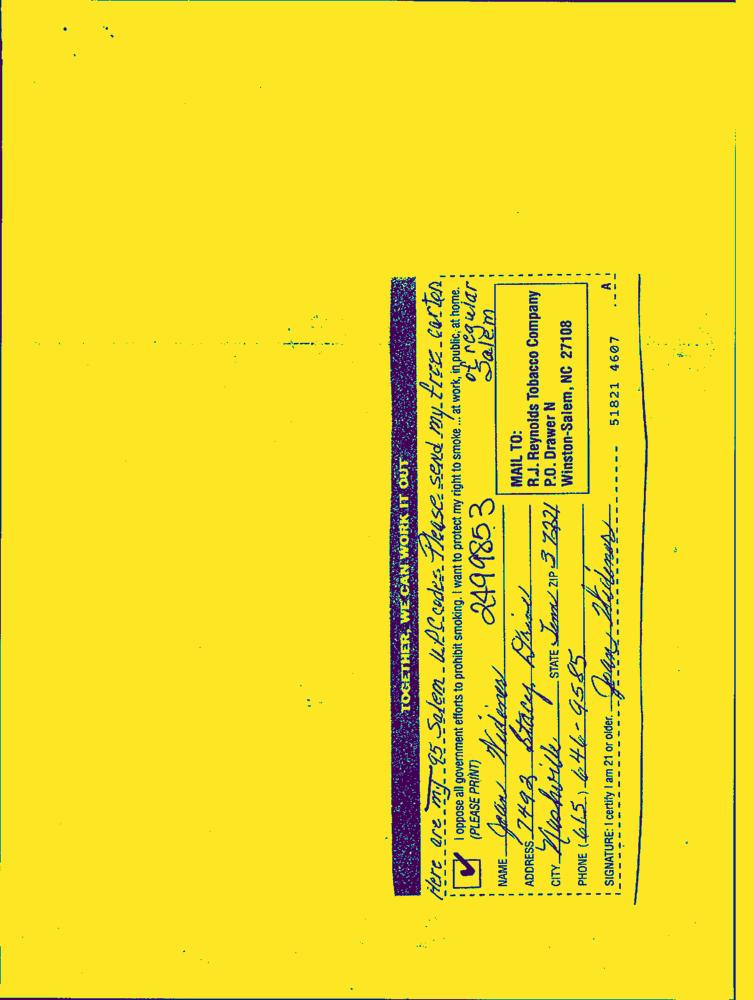 TOGETHER, WE CAN WORK IT OUT
Here are my 95 Salem UPC codes. Please send my free carton
of regular
Salem
I oppose all government efforts to prohibit smoking. I want to protect my right to smoke ... at work, in public, at home.
(PLEASE PRINT)
2499853
NAME Joan Widener
ADDRESS 7493 Stacey Drive
CITY Nashville STATE Tenn ZIP 37221
PHONE (615) 646-9585
SIGNATURE: I certify I am 21 or older. Joan Widener
MAIL TO:
R.J. Reynolds Tobacco Company
P.O. Drawer N
Winston-Salem, NC 27108
51821 4607
A